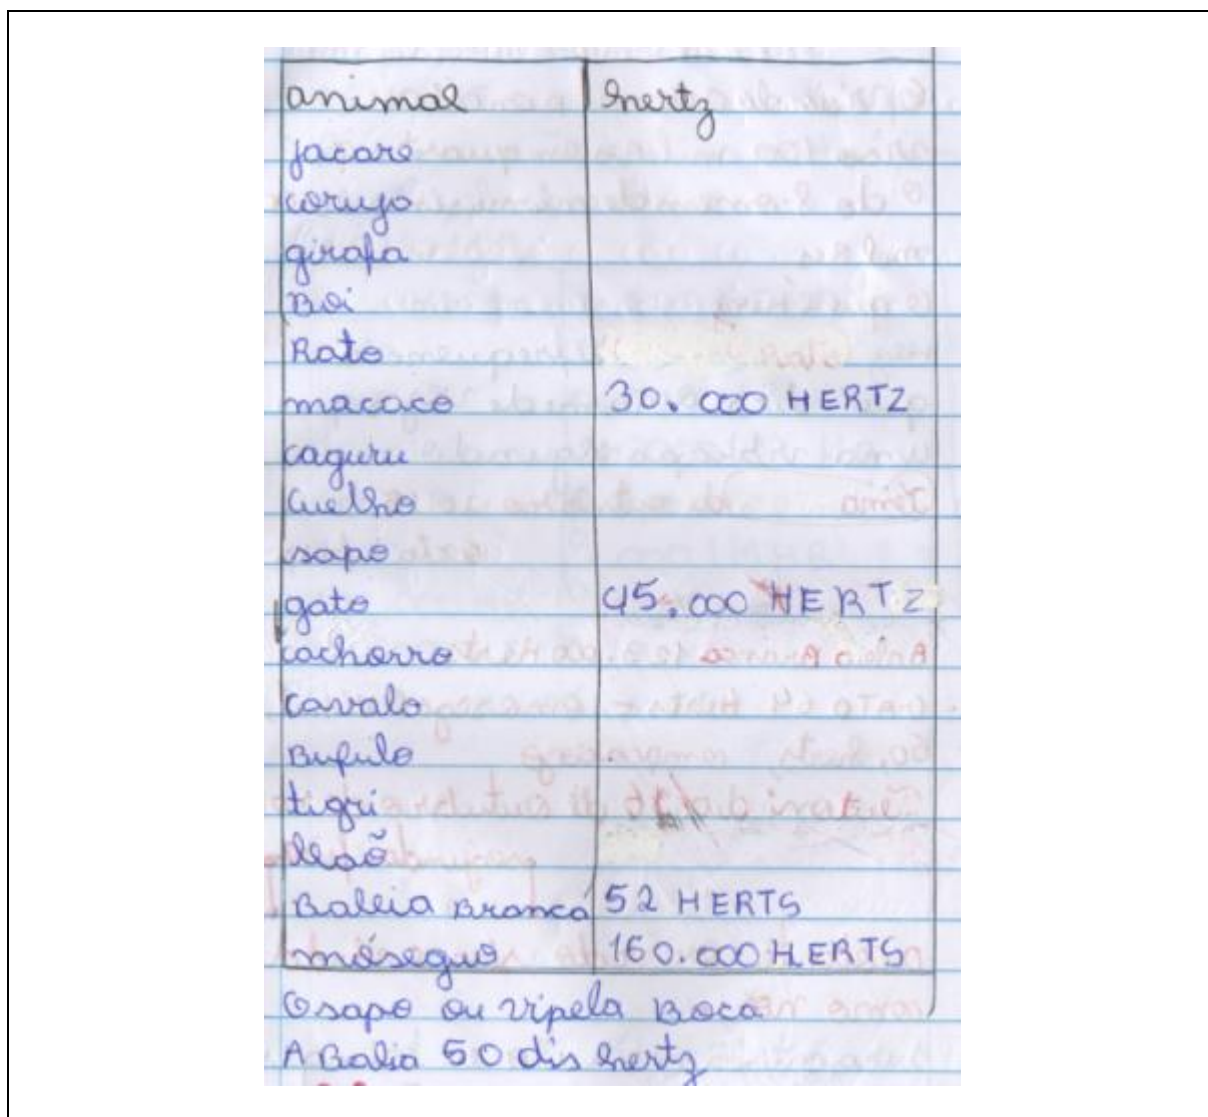 animal hertz
jacare
coruja
girafa
Boi
Rato
macaco 30.000 HERTZ
caguru
Cuelho
sapo
gato 45.000 HERTZ
cachorro
cavalo
Bufulo
tigri
leaõ
Baleia Branca 52 HERTS
móseguo 160.000 HERTS
O sapo ou vi pela Boca
A Balia 50 dis hertz